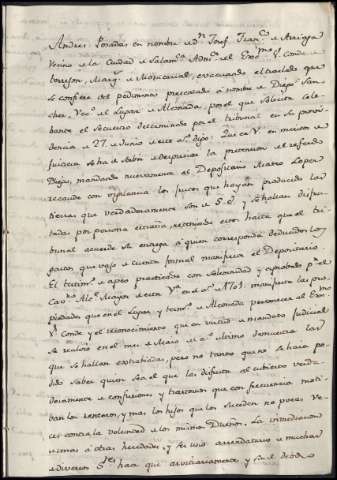 Andres Posadas en nombre de Dn Josef Franco de Arriaga
Vecino de la Ciudad de Salamca Admor del Exmo Sr Conde
Marqs de Moscarial, evacuando el traslado que
se confiere del pedimento presentado a nombre de Diego San-
chez, Veco del Lugar de Alconada, por el que solicita cele-
barse el secuestro determinado por el tribunal en su provi-
dencia de 27 de Junio de este ao digo: Que en merito de
Justicia se ha de servir despreciar la pretension del referido
Diego, mandando nuevamente al Depositario Mateo Lopez
recaude con vigilancia los frutos que hayan producido las
tierras que verdaderamente son de S.E. y se hallan disfru-
tadas por persona extraña, reteniendo estos hasta que el tri-
bunal acuerde se entregue a quien corresponda deduciendo los
gastos que vajo de cuenta formal manifieste el Depositario
El testimo de apeo practicado con solemnidad y aprobado pr el
Alce Mayor de esta en el ao de 1701. manifiesta las pro-
piedades que en el Lugar y termo de Alconada pertenecen al Exmo
Sr Conde y el reconocimiento que en virtud de mandato Judicial
se realizó en el mes de Marzo del ao ultimo demuestra las
que se hallan extrabiadas, pero no tanto que no se haia po-
dido saber quien sea el que las disfruta al cubierto verda-
deramente de confusiones, y traiciones que con frecuencia moti-
van los renteros, y mas los hijos que los suceden no pocas ve-
ces contra la voluntad de los mismos Dueños. La inmediacion
de unas a otras heredades, y el ser arrendatario de muchas
de diversos Sres hace que arvitrariamente, y sin el